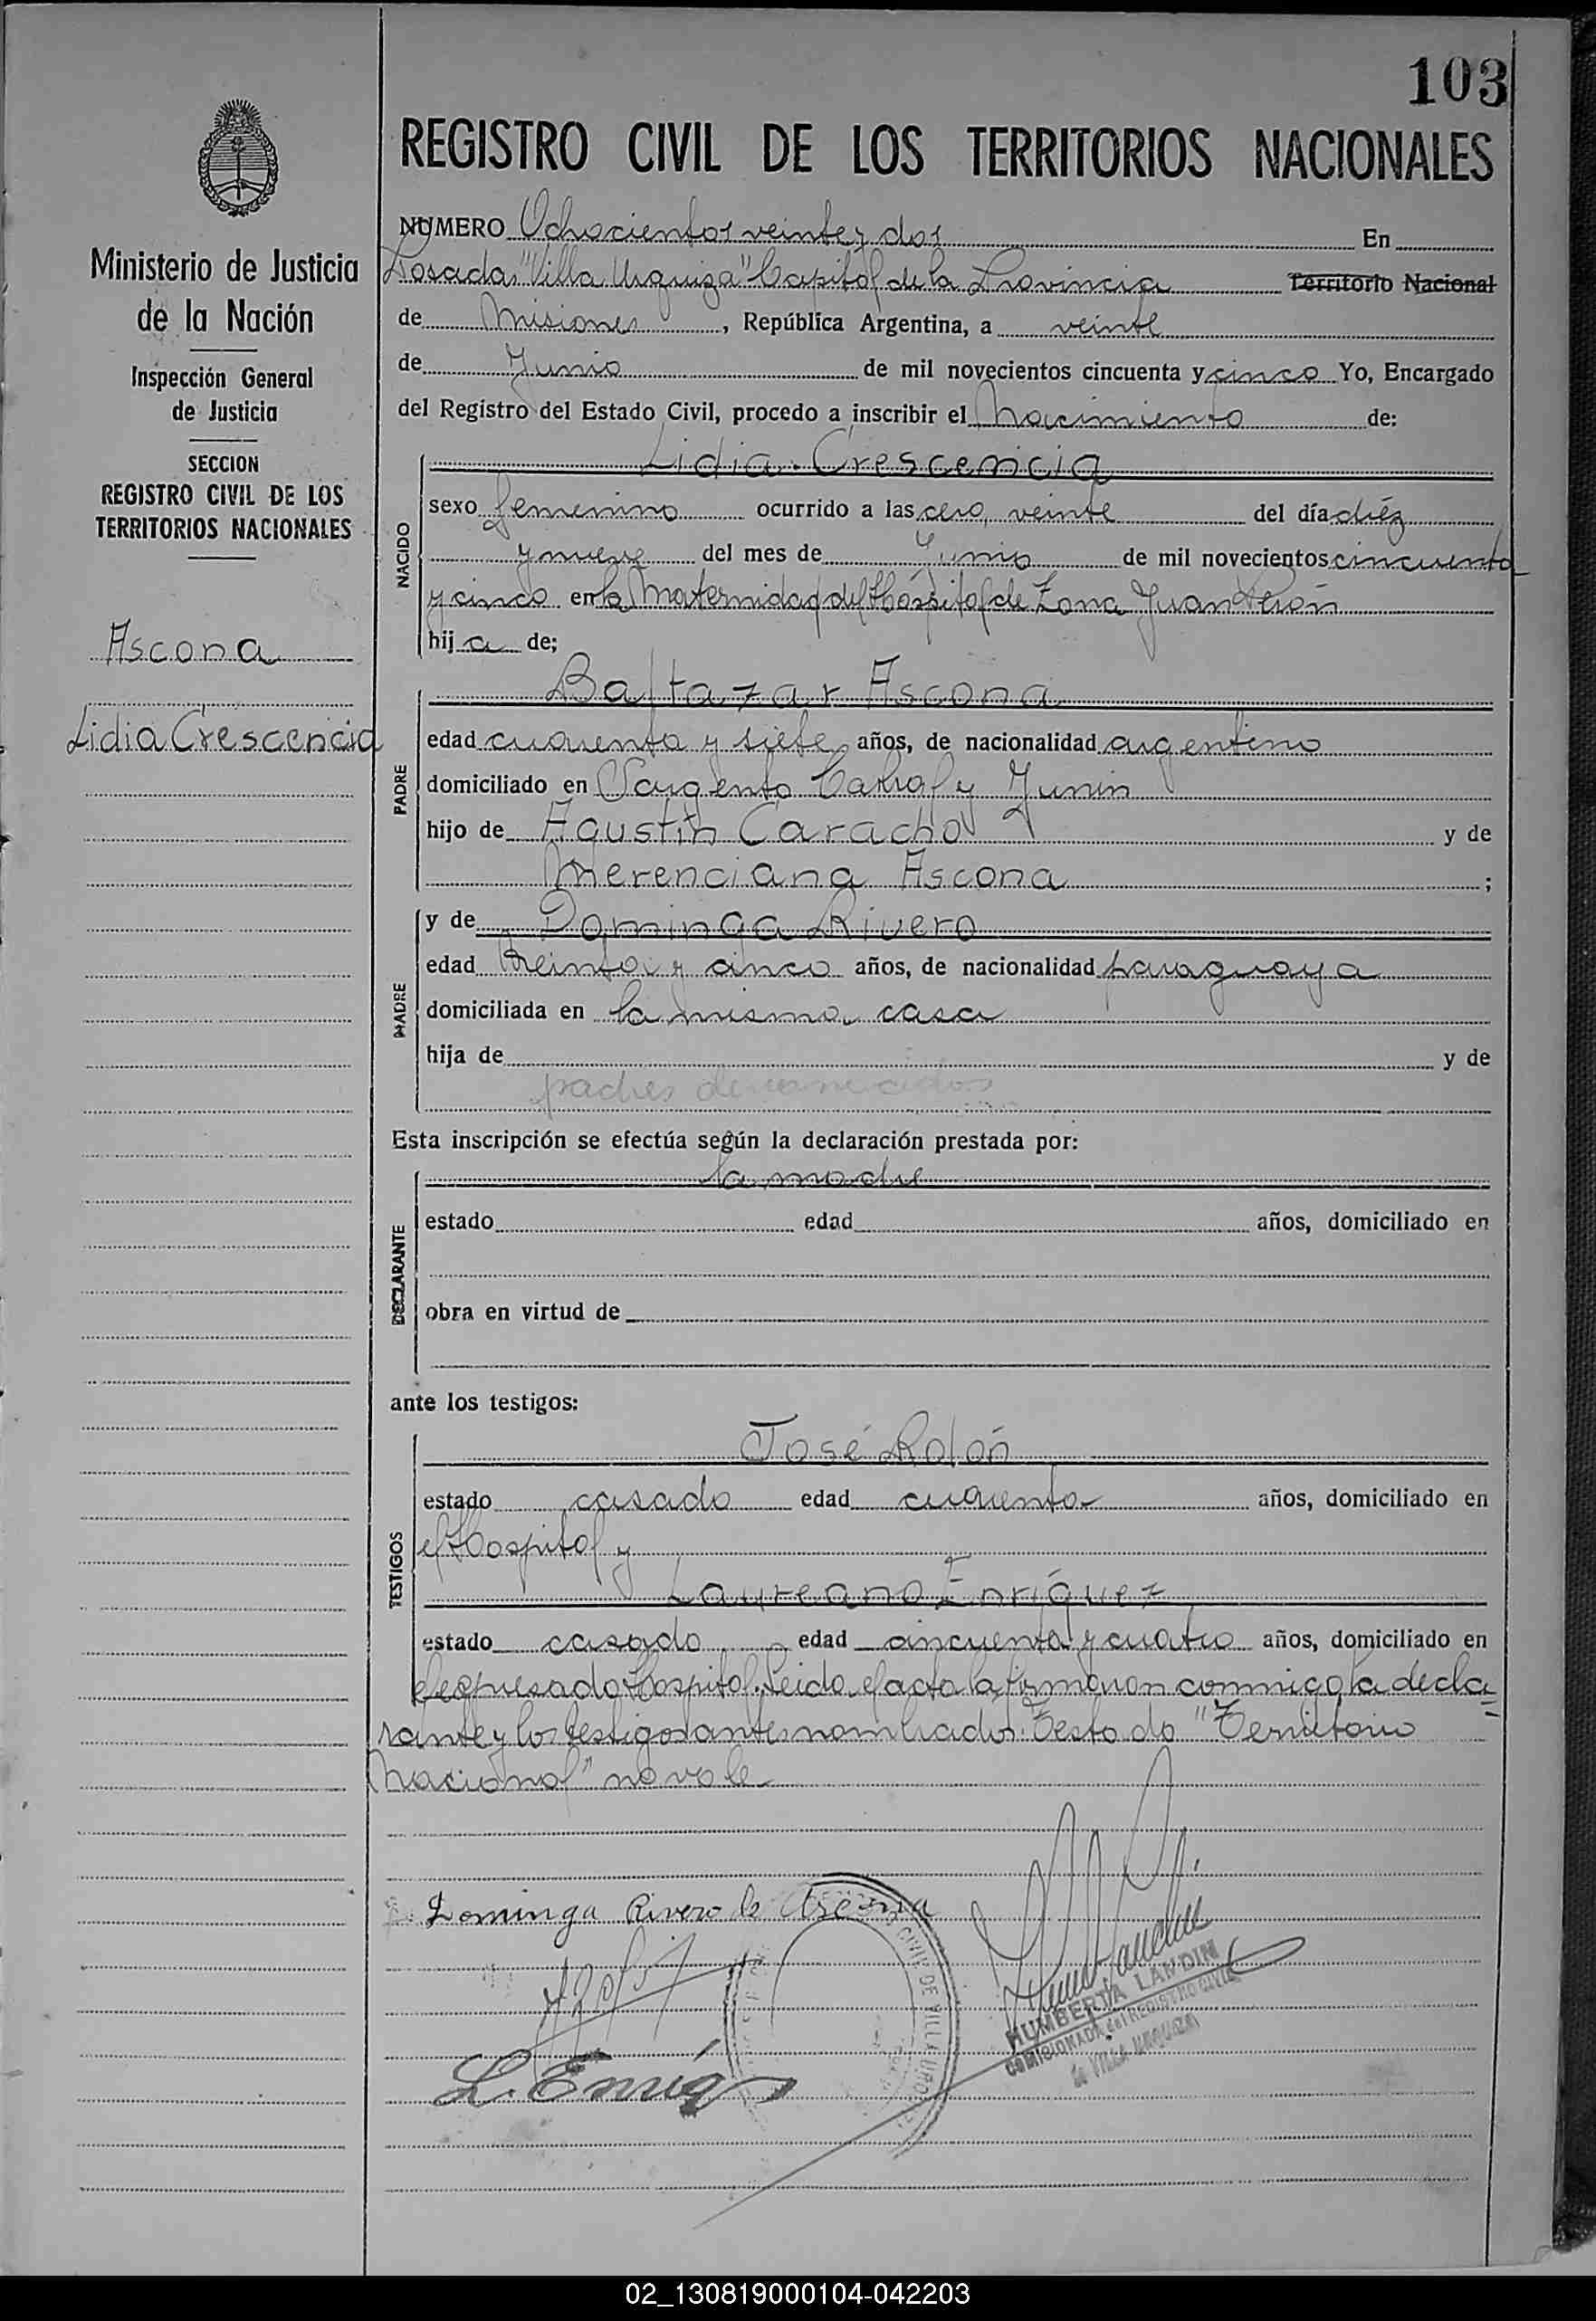 103
REGISTRO CIVIL DE LOS TERRITORIOS NACIONALES
Ministerio de Justicia
de la Nación
Inspección General
de Justicia
SECCION
REGISTRO CIVIL DE LOS
TERRITORIOS NACIONALES
Ascona
Lidia Crescencia
NUMERO Ochocientos veinte y dos En
Posadas "Villa Urquiza" Capital de la Provincia Territorio Nacional
de Misiones, República Argentina, a veinte
de Junio de mil novecientos cincuenta y cinco Yo, Encargado
del Registro del Estado Civil, procedo a inscribir el Nacimiento de:
NACIDO
Lidia Crescencia
sexo femenino ocurrido a las cero, veinte del día diéz
y nueve del mes de Junio de mil novecientos cincuenta
y cinco en la Maternidad del Hospital de Zona Juan Perón
hija de;
PADRE
Baltazar Ascona
edad cuarenta y siete años, de nacionalidad argentino
domiciliado en Sargento Cabral y Junin
hijo de Agustín Caracho y de
Merenciana Ascona ;
MADRE
y de Dominga Rivero
edad treinta y cinco años, de nacionalidad paraguaya
domiciliada en la misma casa
hija de y de
padres desconocidos
Esta inscripción se efectúa según la declaración prestada por:
DECLARANTE
la madre
estado edad años, domiciliado en
obra en virtud de
ante los testigos:
TESTIGOS
José Rolón
estado casado edad cuarenta años, domiciliado en
el Hospital y
Laureano Enríquez
estado casado edad cincuenta y cuatro años, domiciliado en
el expresado Hospital. Leida el acta la firmaron conmigo la decla
rante y los testigos antes nombrados. Testado "Territorio
Nacional" no vale
Dominga Rivero de Ascona
L. Enríq
CIVIL DE VILLA URQUIZA
HUMBERTA LANDINI
COMISIONADA del REGISTRO CIVIL
de VILLA URQUIZA
02_130819000104-042203